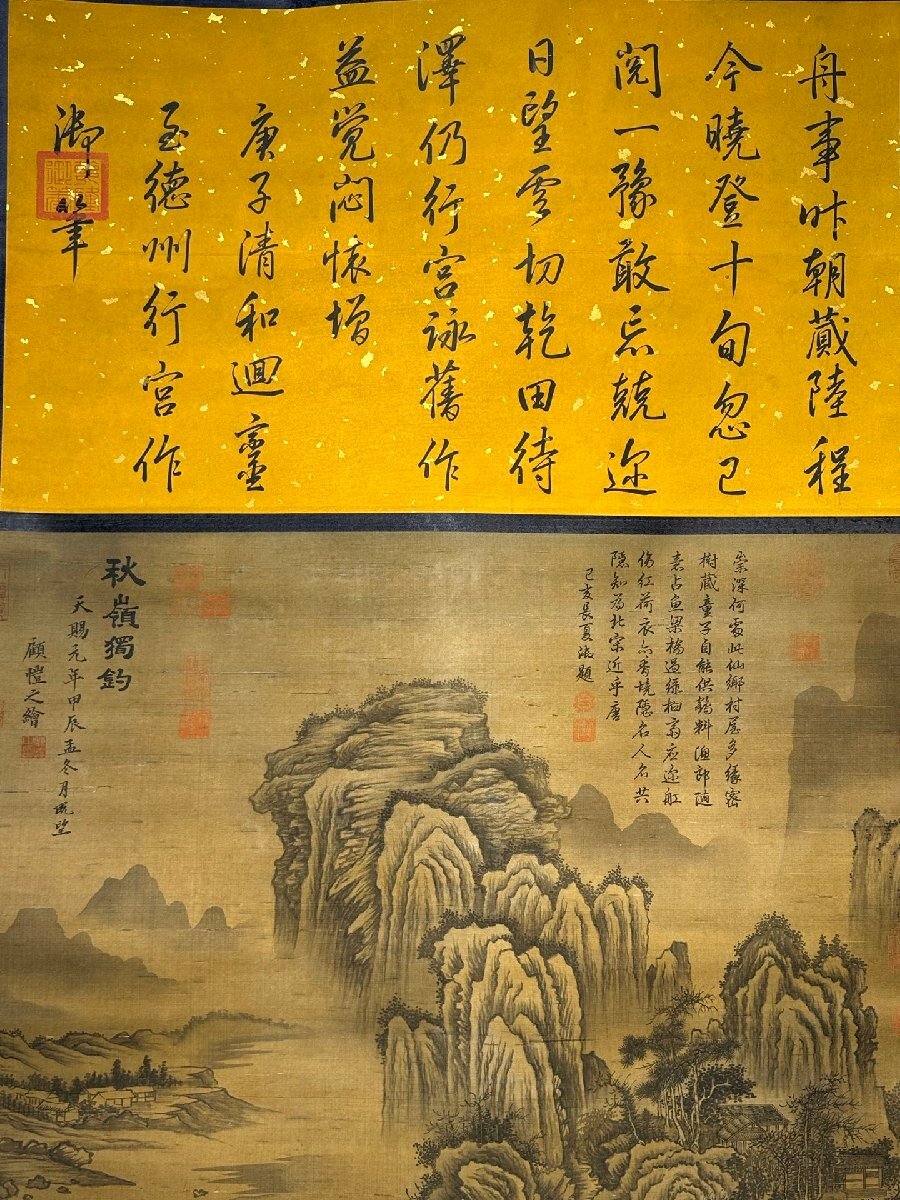 舟事昨朝蕆陸程
今曉登十旬忽已
閱一豫敢忘兢邇
日望雲切乾田待
澤仍行宮詠舊作
益覺悶懷增
庚子清和迴鑾
至德州行宮作
御筆
深何處此仙鄉村屋多緣密
樹藏童子自能供鶴料漁郎隨
意占魚梁橋過綠柏
傷紅荷衣亦香境隱名人名共
隱知為北宋近乎唐
己亥長夏御題
秋嶺獨釣
天賜元年甲辰孟冬月既望
顧愷之繪